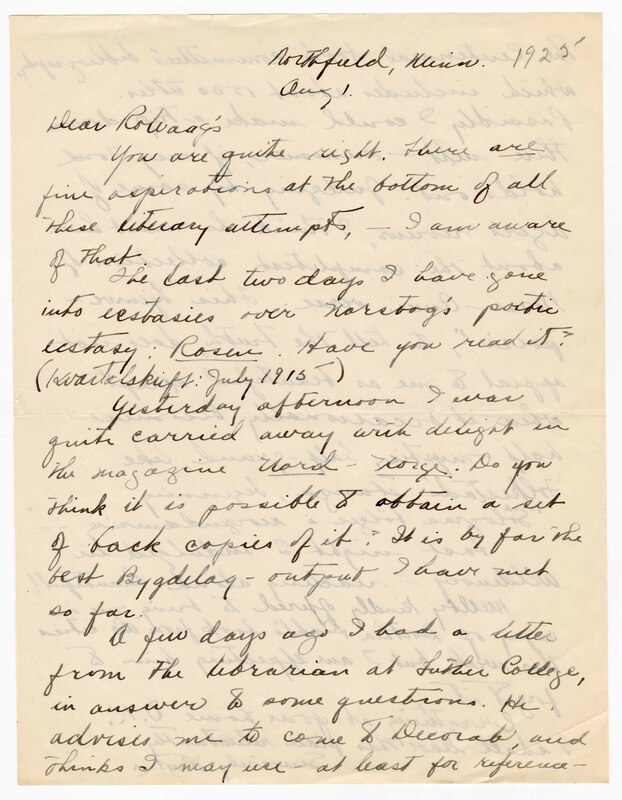 Northfield, Minn. 1925
Aug 1.
Dear Rolvaag's
You are quite right. There are
fine aspirations at the bottom of all
these literary attempts, – I am aware
of that.
The last two days I have gone
into ecstasies over Norstog's poetic
ecstasy: Rosen. Have you read it?
(Kvartalskrift: July 1915)
Yesterday afternoon I was
quite carried away with delight in
the magazine Nord-Norge. Do you
think it is possible to obtain a set
of back copies of it? It is by far the
best Bygdelag-output I have met
so far.
A few days ago I had a letter
from the librarian at Luther College,
in answer to some questions. He
advises me to come to Decorah, and
thinks I may use – at least for reference –